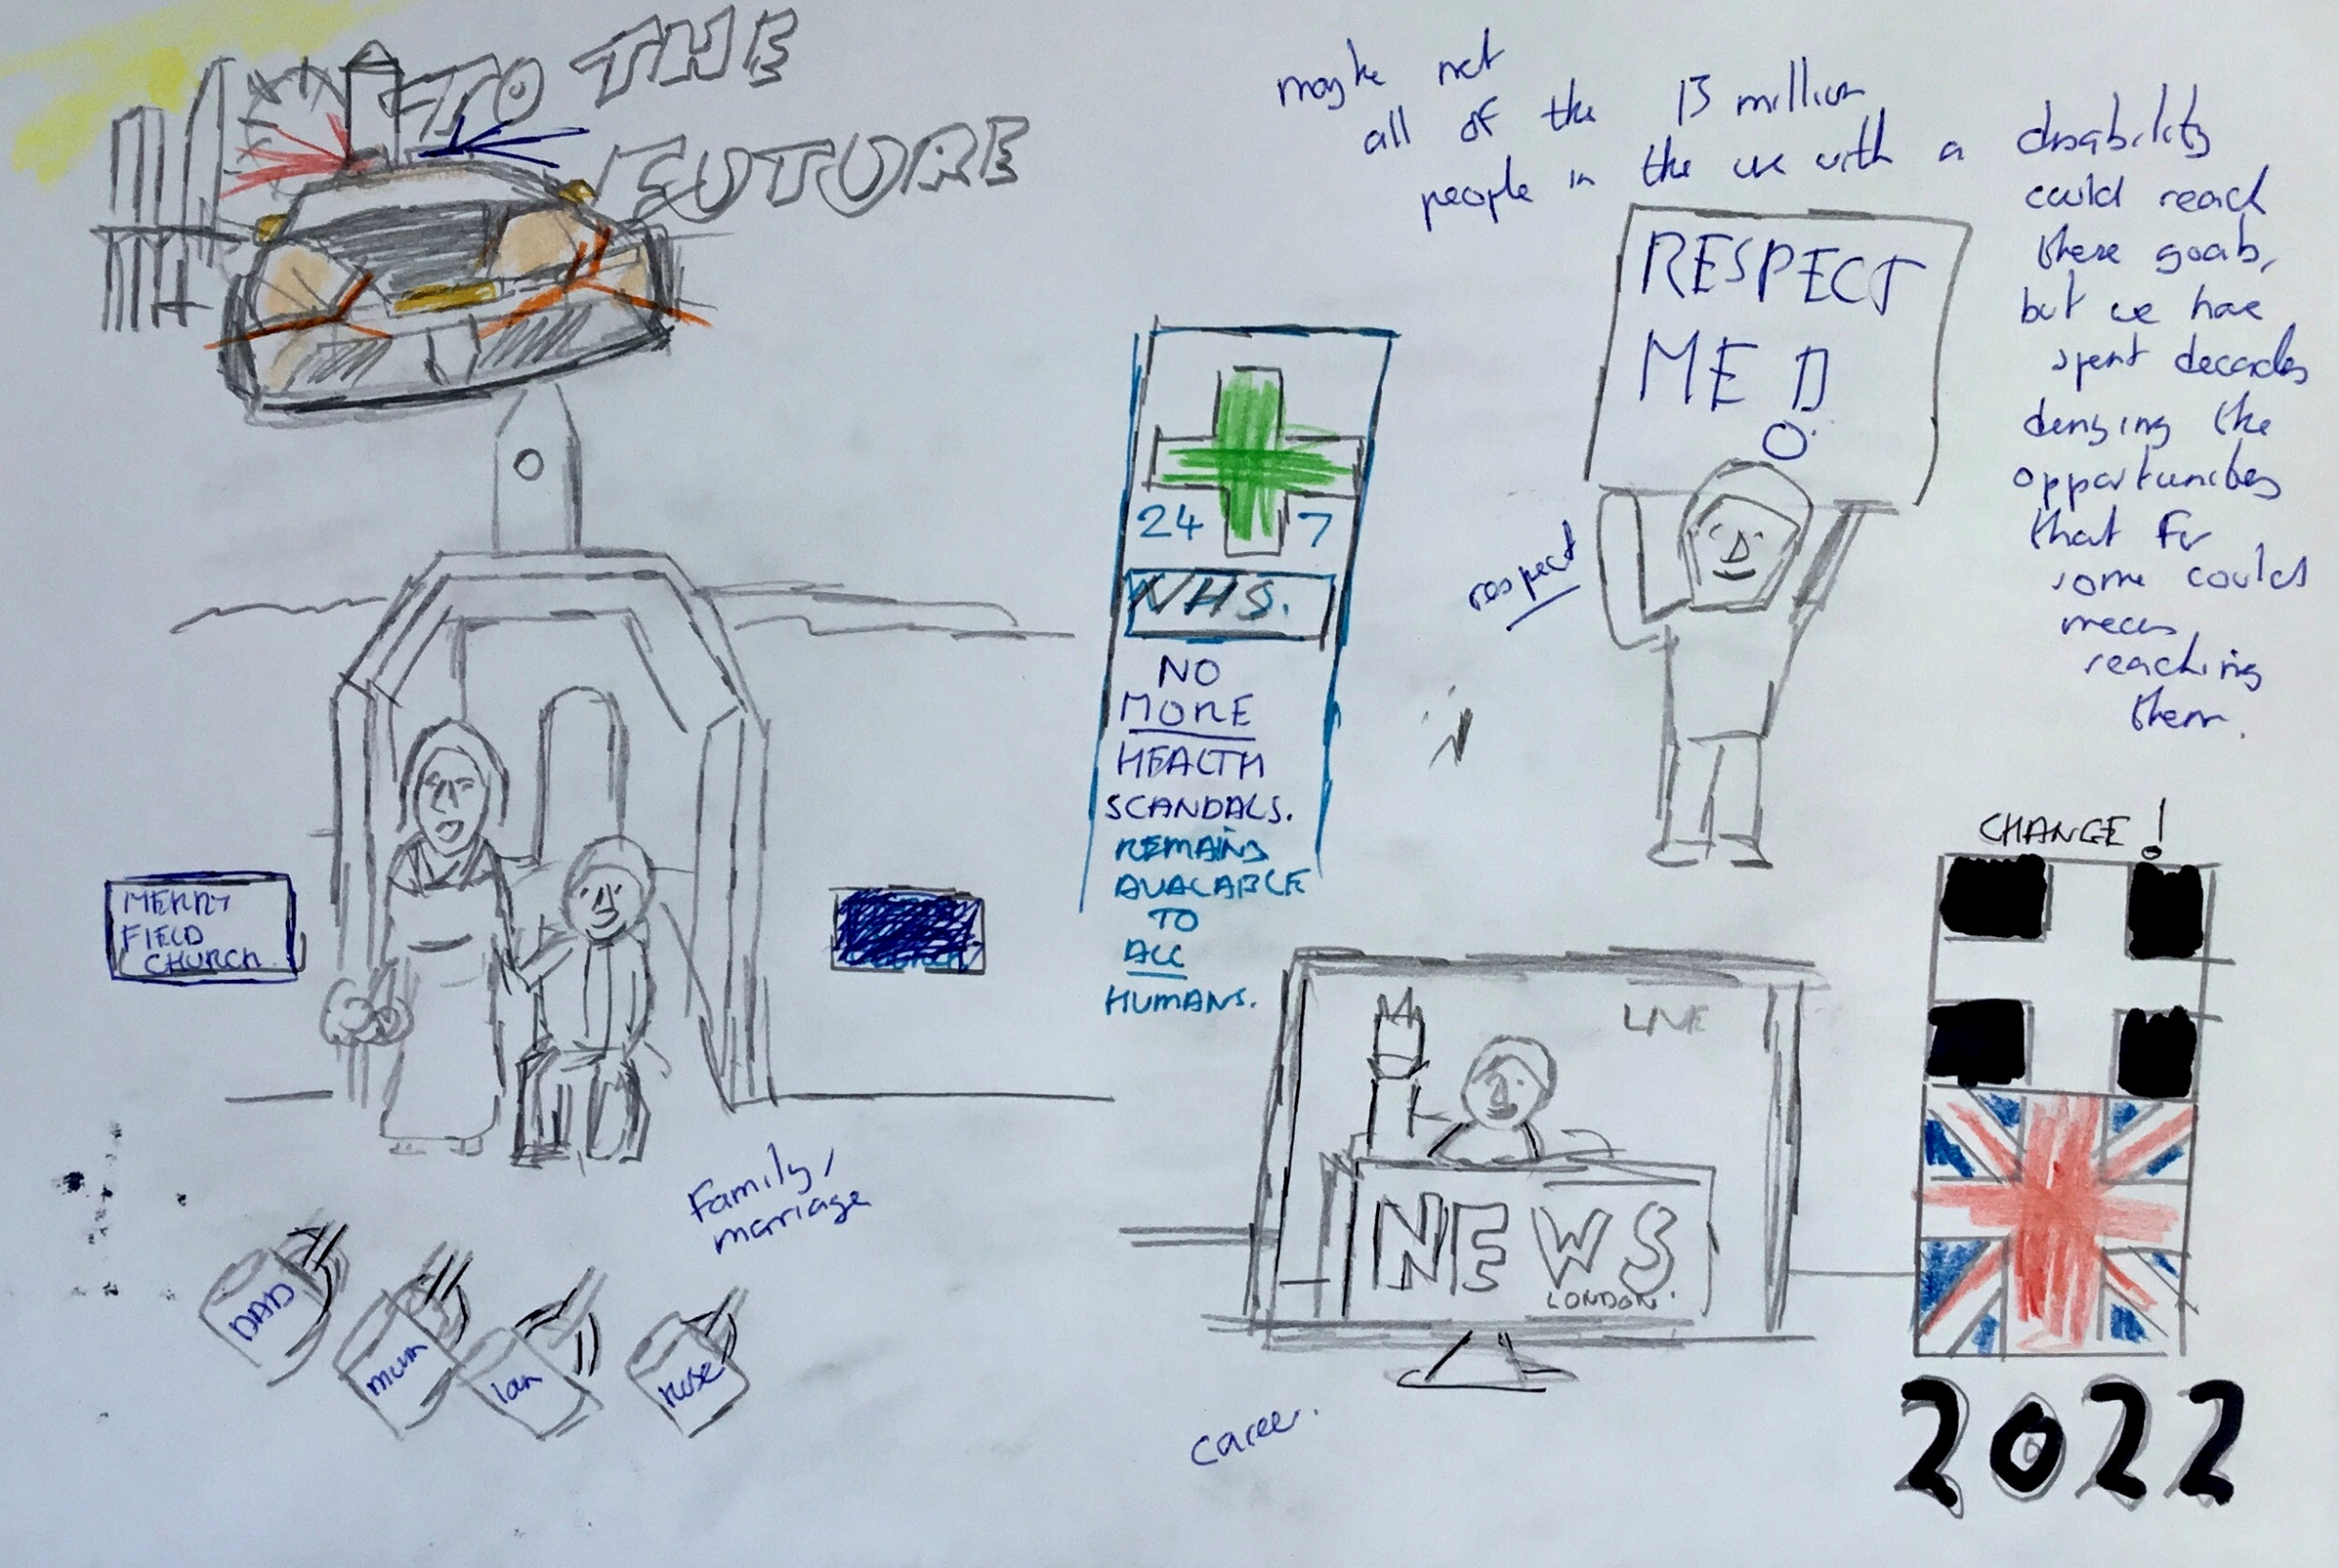 TO THE
FUTURE
maybe not
all of the 13 million
people in the UK with a disability
could reach
these goals,
but we have
spent decades
denying the
opportunities
that for
some could
mean
reaching
them.
RESPECT
ME !
respect
24 7
NHS.
NO
MORE
HEALTH
SCANDALS.
REMAINS
AVALABLE
TO
ALL
HUMANS.
MERRY
FIELD
CHURCH
Family,
marriage
DAD
mum
Ian
Rose
LIVE
NEWS
LONDON.
career.
CHANGE!
2022